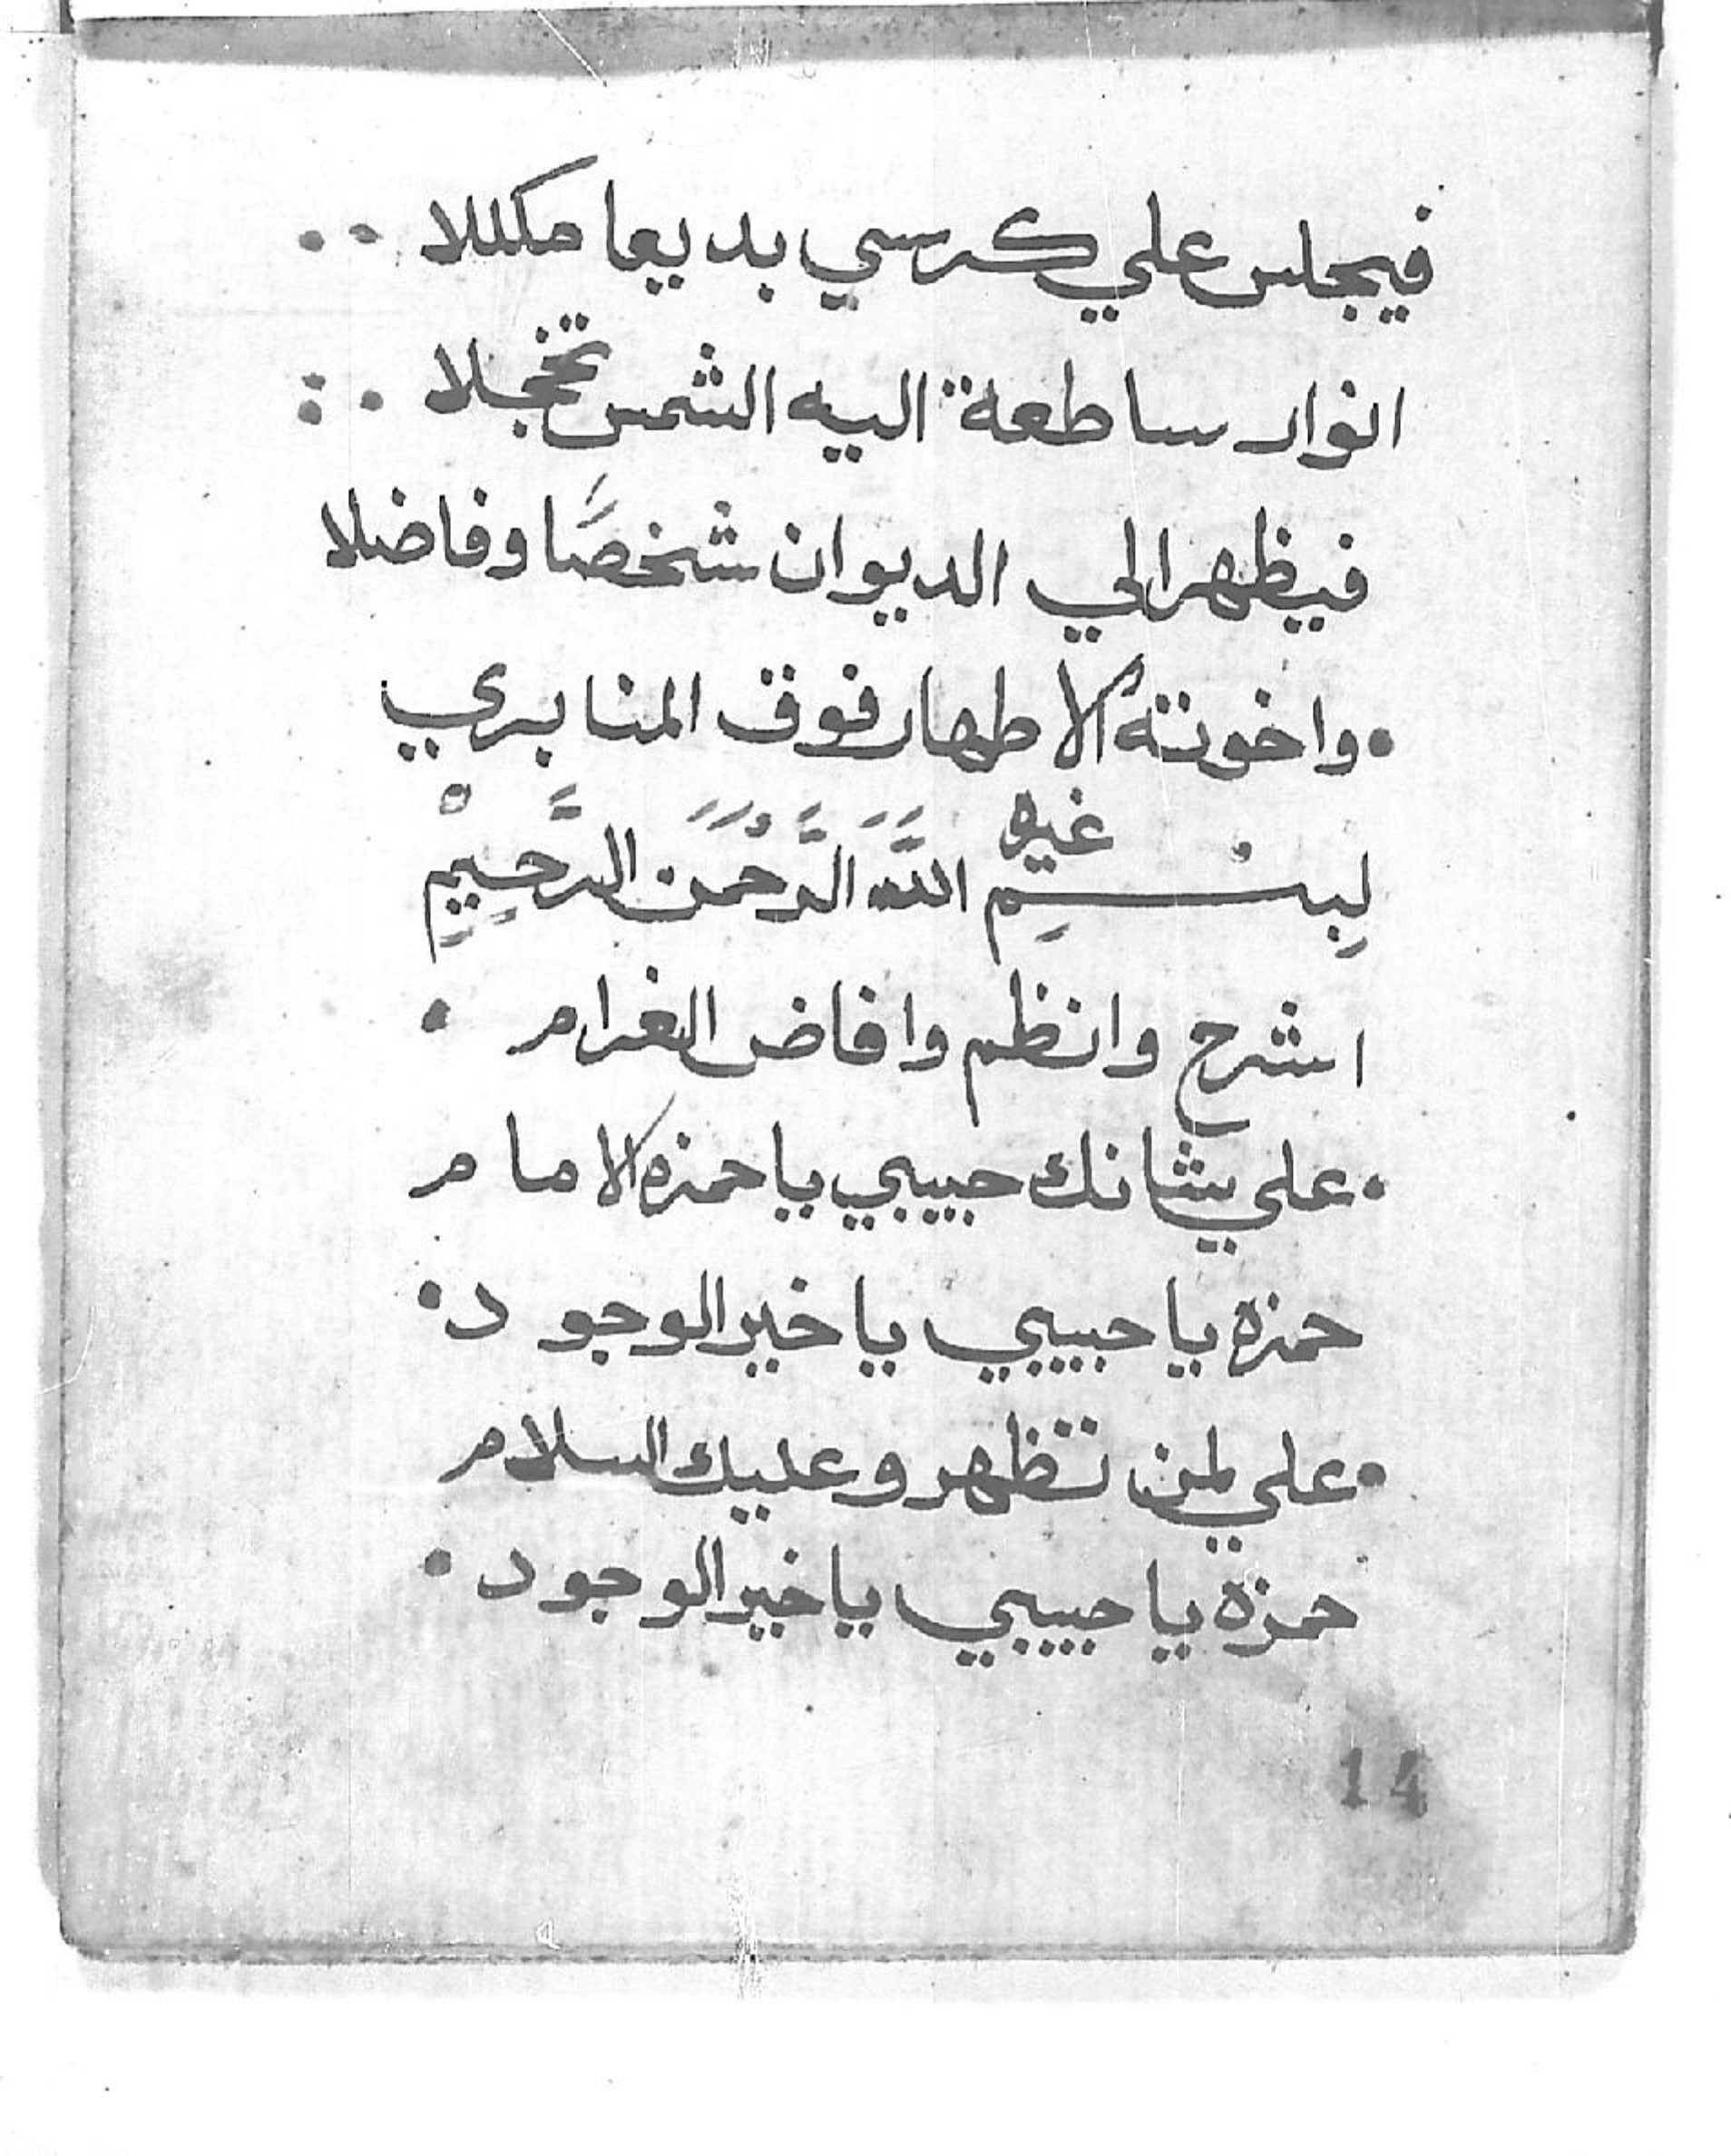 فيجلس علي كرسي بديعا مكللا ..
انوار ساطعة اليه الشمس تخجلا . :
فيظهر الي الديوان شخصًا وفاضلا
. واخوتهُ الاطهار فوق المنابري
غيره
لِبسْمِ اللَّهَ الرَّحْمَنَ الرَّحِيِمْ
اشرح وانظم وافاض الغرام .
. علي شانك حبيبي يا حمزه الامام
حمزه يا حبيبي يا خير الوجود .
. علي لمن تظهر وعليك السلام
حمزة يا حبيبي يا خير الوجود .
14